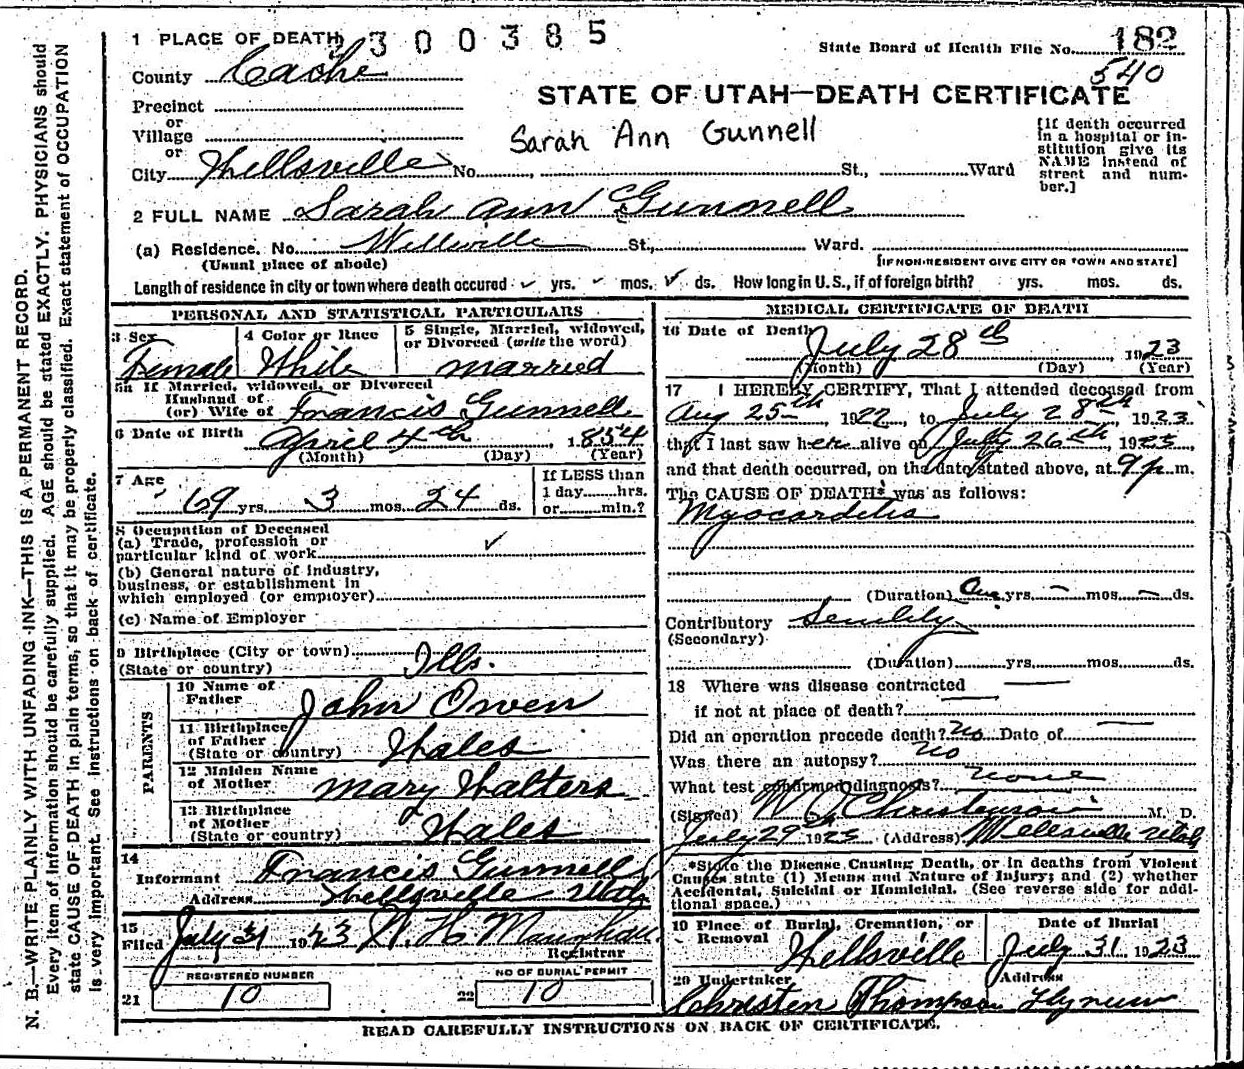 N. B.—WRITE PLAINLY WITH UNFADING INK—THIS IS A PERMANENT RECORD.
Every item of information should be carefully supplied. AGE should be stated EXACTLY. PHYSICIANS should
state CAUSE OF DEATH in plain terms, so that it may be properly classified. Exact statement of OCCUPATION
is very important. See instructions on back of certificate.
1 PLACE OF DEATH 2300385
State Board of Health File No. 182
540
County Cache
STATE OF UTAH—DEATH CERTIFICATE
Precinct
or
Village
or
Sarah Ann Gunnell
[If death occurred in a hospital or institution give its NAME instead of street and number.]
City Wellsville No. , St., Ward
2 FULL NAME Sarah Ann Gunnell
(a) Residence. No. Wellsville St., Ward.
(Usual place of abode) [IF NON-RESIDENT GIVE CITY OR TOWN AND STATE]
Length of residence in city or town where death occured yrs. mos. ds. How long in U.S., if of foreign birth? yrs. mos. ds.
PERSONAL AND STATISTICAL PARTICULARS
3 Sex Female
4 Color or Race White
5 Single, Married, widowed, or Divorced (write the word) married
5a If Married, widowed, or Divorced
Husband of
(or) Wife of Francis Gunnell
6 Date of Birth April 4th, 1854
(Month) (Day) (Year)
7 Age 69 yrs. 3 mos. 24 ds.
If LESS than 1 day hrs. or min.?
8 Occupation of Deceased
(a) Trade, profession or
particular kind of work
(b) General nature of industry,
business, or establishment in
which employed (or employer)
(c) Name of Employer
9 Birthplace (City or town)
(State or country) Ills.
PARENTS
10 Name of Father John Owen
11 Birthplace of Father (State or country) Wales
12 Maiden Name of Mother Mary Walters
13 Birthplace of Mother (State or country) Wales
14
Informant Francis Gunnell
Address Wellsville Utah
15
Filed July 31 1923 W H Maughan
Registrar
REGISTERED NUMBER
21 10
NO OF BURIAL PERMIT
22 10
MEDICAL CERTIFICATE OF DEATH
16 Date of Death July 28th, 1923
(Month) (Day) (Year)
17 I HEREBY CERTIFY, That I attended deceased from
Aug 25th 1922, to July 28th, 1923
that I last saw her alive on July 26th, 1923,
and that death occurred, on the date stated above, at 9 p. m.
The CAUSE OF DEATH* was as follows:
Myocarditis
(Duration) One yrs. — mos. — ds.
Contributory Senility
(Secondary)
(Duration) yrs. mos. ds.
18 Where was disease contracted
if not at place of death?
Did an operation precede death? No Date of
Was there an autopsy? No
What test confirmed diagnosis? none
(Signed) Christenson M. D.
July 29th 1923 (Address) Wellsville Utah
*State the Disease Causing Death, or in deaths from Violent
Causes state (1) Means and Nature of Injury; and (2) whether
Accidental, Suicidal or Homicidal. (See reverse side for addi-
tional space.)
19 Place of Burial, Cremation, or Removal Wellsville
Date of Burial July 31 1923
20 Undertaker Christen Thompson
Address Hyrum
READ CAREFULLY INSTRUCTIONS ON BACK OF CERTIFICATE.